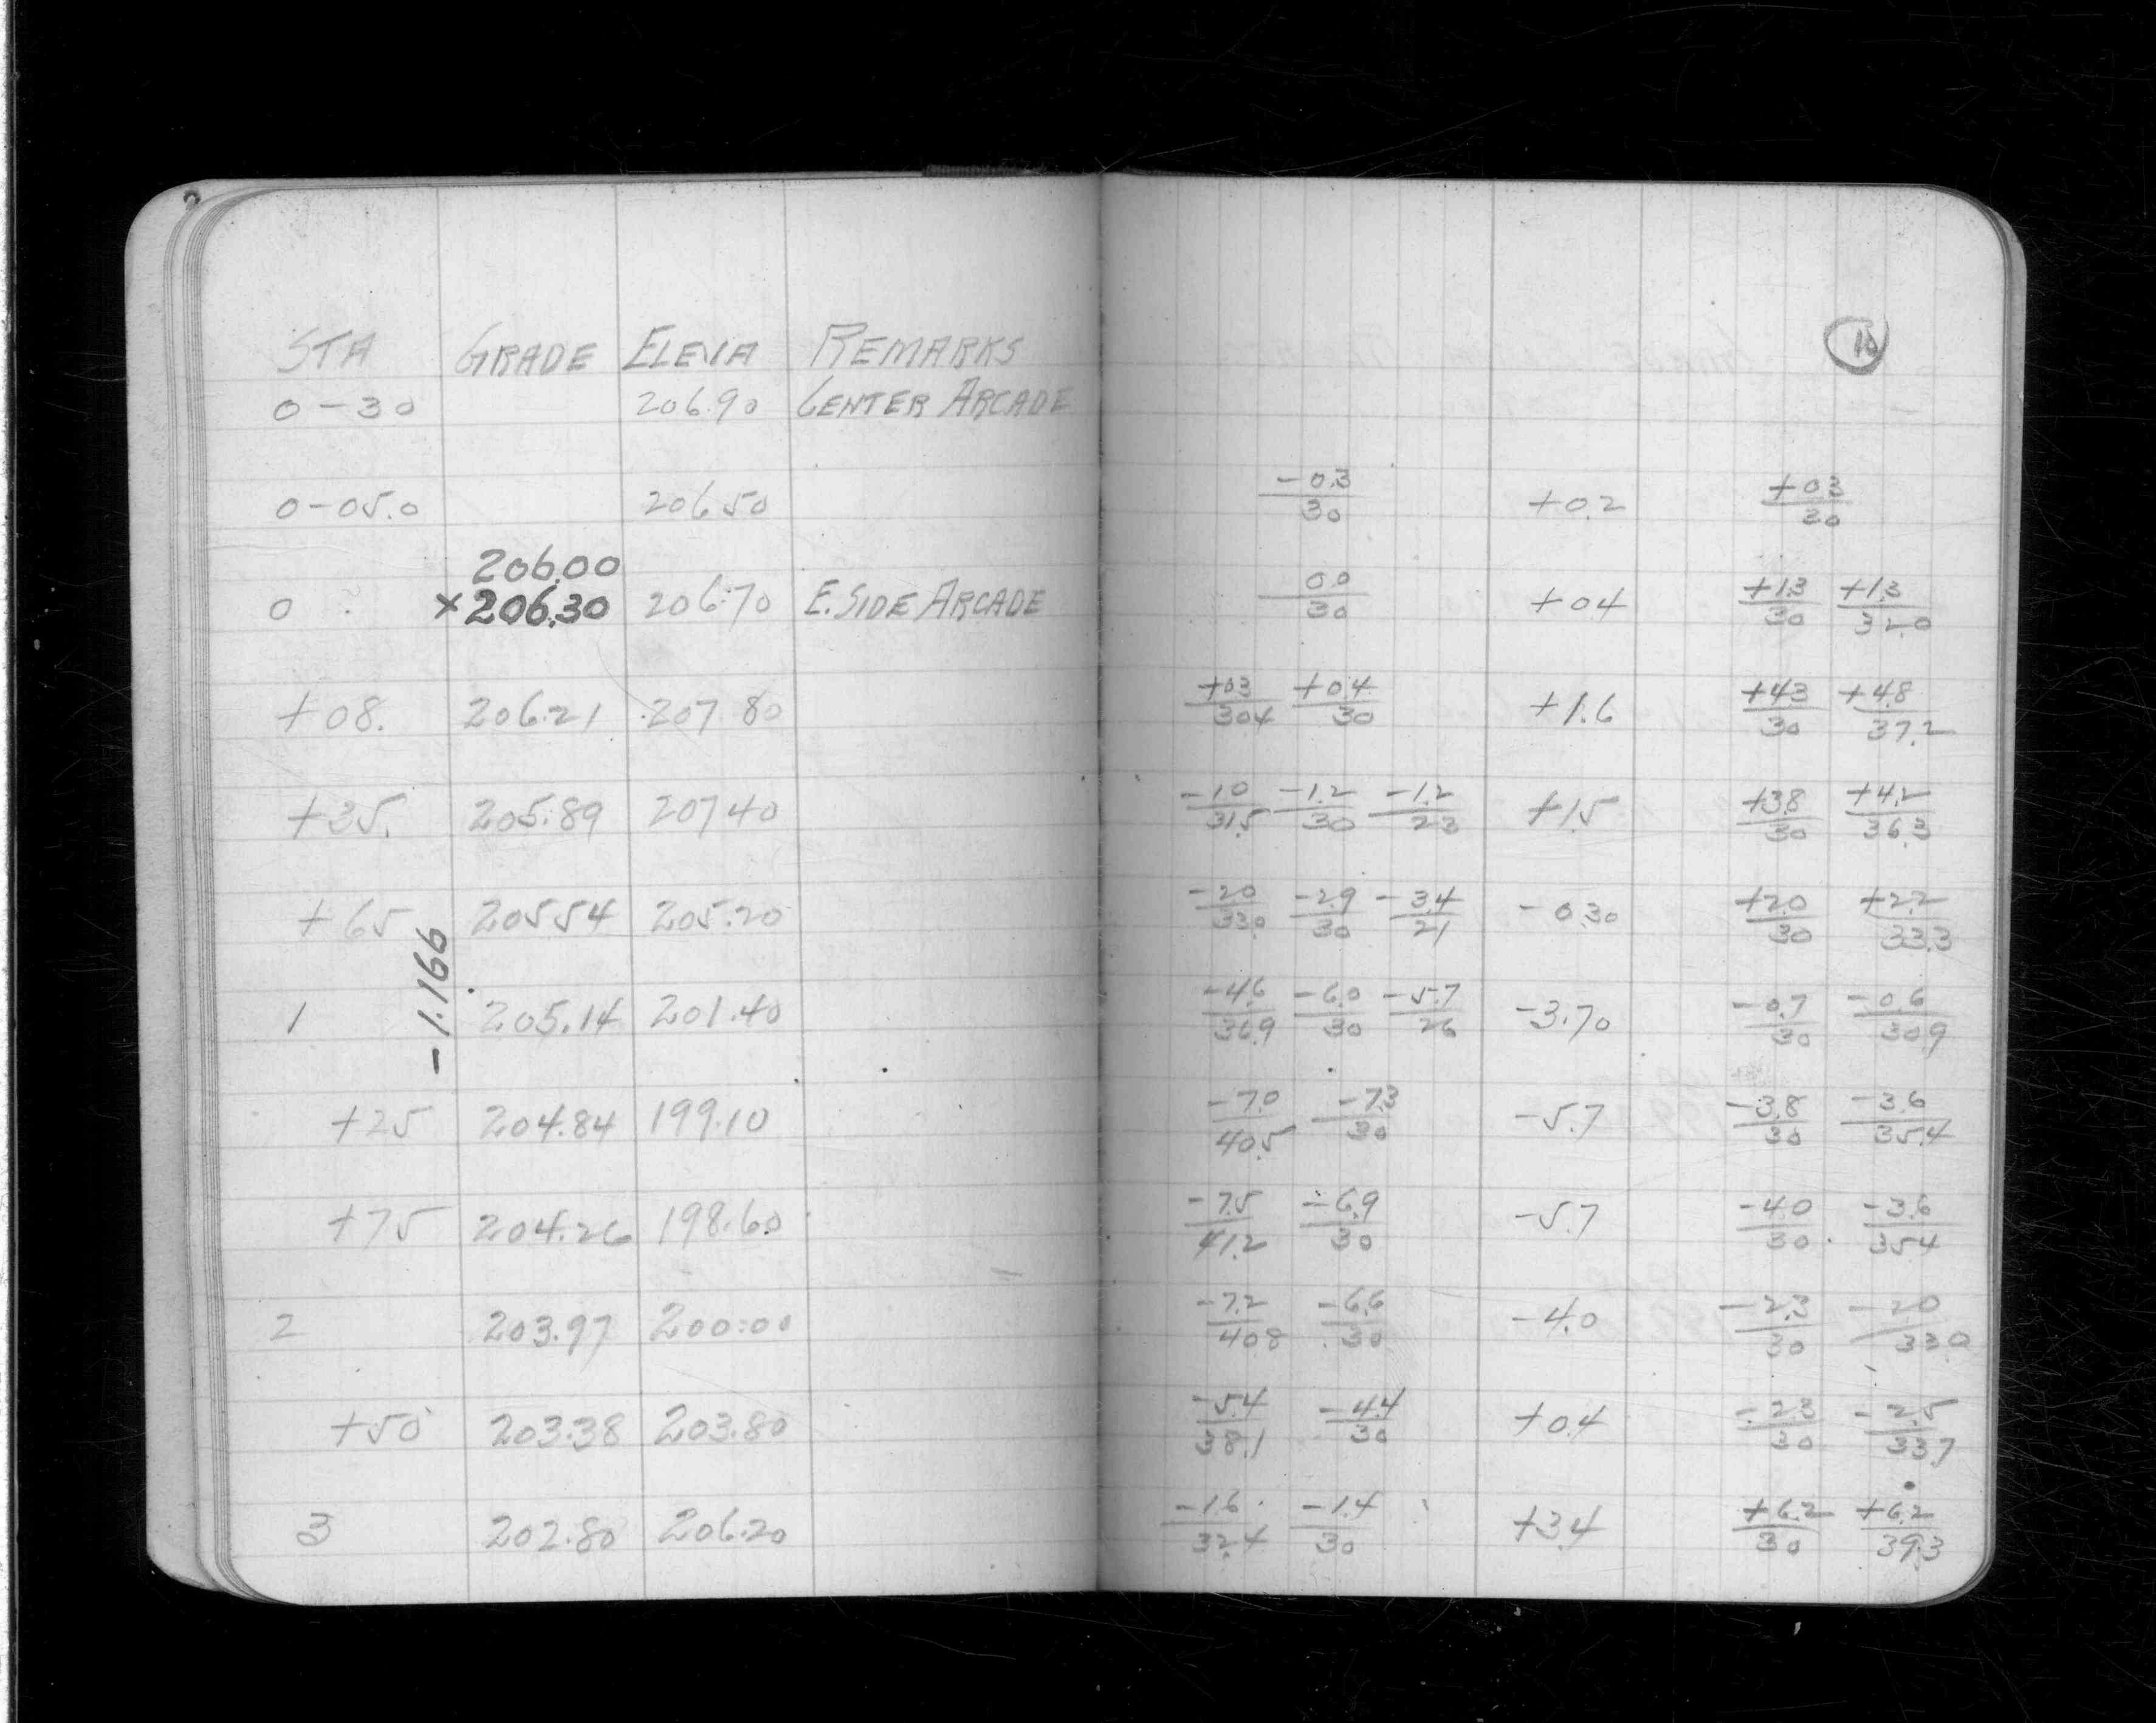 10
STA GRADE ELEVA REMARKS
0-30 206.90 CENTER ARCADE
0-05.0 206 50 -0.3/30 +0.2 +0.3/30
206.00
0 ×206.30 206.70 E. SIDE ARCADE 0.0/30 +0.4 +1.3/30 +1.3/32.0
+08. 206.21 207 80 +0.3/30.4 +0.4/30 +1.6 +4.3/30 +4.8/37.2
+35. 205.89 207 40 -1.0/31.5 -1.2/30 -1.2/23 +1.5 +3.8/30 +4.2/36.3
+65 205 54 205.20 -2.0/33.0 -2.9/30 -3.4/21 -0.30 +2.0/30 +2.2/33.3
-1.166
1 205.14 201.40 -4.6/36.9 -6.0/30 -5.7/26 -3.70 -0.7/30 -0.6/30.9
+25 204.84 199.10 -7.0/40.5 -7.3/30 -5.7 -3.8/30 -3.6/35.4
+75 204.26 198.60 -7.5/41.2 -6.9/30 -5.7 -4.0/30 -3.6/35.4
2 203.97 200.00 -7.2/40.8 -6.6/30 -4.0 -2.3/30 -2.0/33.0
+50 203.38 203.80 -5.4/38.1 -4.4/30 +0.4 -2.3/30 -2.5/33.7
3 202.80 206.20 -1.6/32.4 -1.4/30 +3.4 +6.2/30 +6.2/39.3